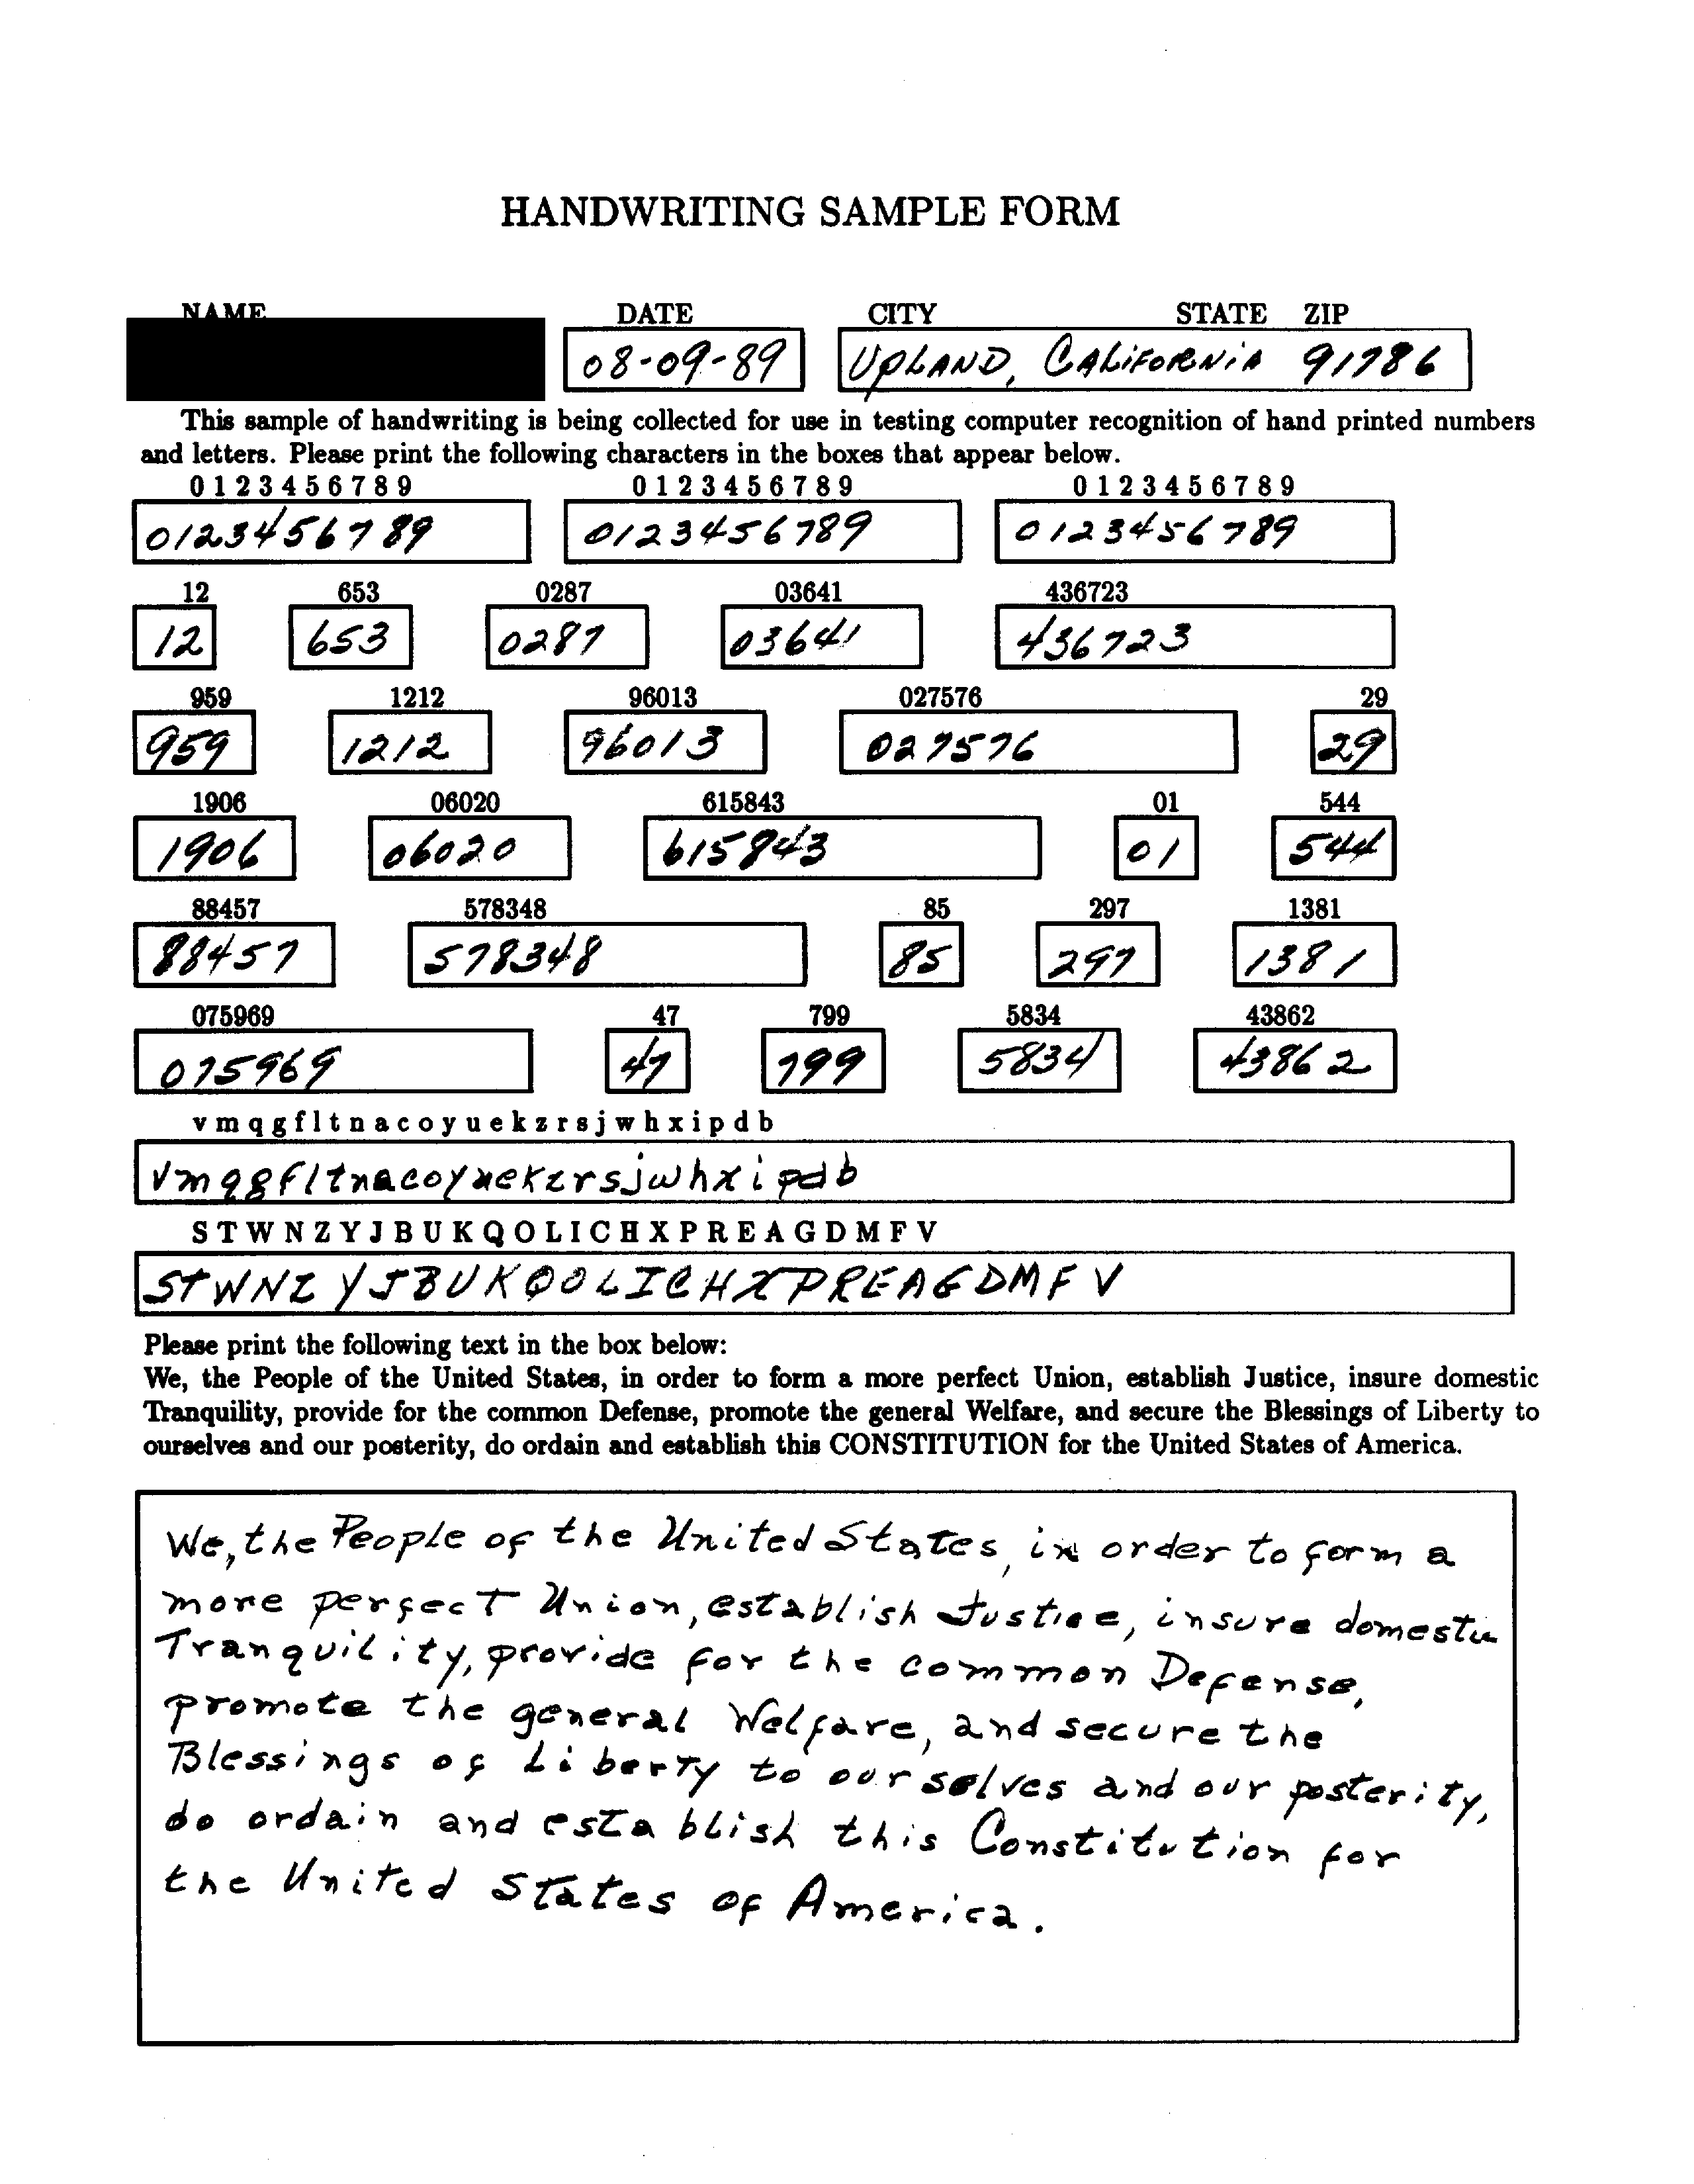 HANDWRITING SAMPLE FORM
NAME DATE CITY STATE ZIP
08-09-89 UPLAND, CALiFORNiA 91786
This sample of handwriting is being collected for use in testing computer recognition of hand printed numbers
and letters. Please print the following characters in the boxes that appear below.
0 1 2 3 4 5 6 7 8 9 0 1 2 3 4 5 6 7 8 9 0 1 2 3 4 5 6 7 8 9
0123456789 0123456789 0123456789
12 653 0287 03641 436723
12 653 0287 03641 436723
959 1212 96013 027576 29
959 1212 96013 027576 29
1906 06020 615843 01 544
1906 06020 615843 01 544
88457 578348 85 297 1381
88457 578348 85 297 1381
075969 47 799 5834 43862
075969 47 799 5834 43862
v m q g f l t n a c o y u e k z r s j w h x i p d b
vmqgfltnacoyuekzrsjwhxipdb
S T W N Z Y J B U K Q O L I C H X P R E A G D M F V
STWNZYJBUKQOLICHXPREAGDMFV
Please print the following text in the box below:
We, the People of the United States, in order to form a more perfect Union, establish Justice, insure domestic
Tranquility, provide for the common Defense, promote the general Welfare, and secure the Blessings of Liberty to
ourselves and our posterity, do ordain and establish this CONSTITUTION for the United States of America.
We, the People of the United States, in order to form a
more perfect Union, establish Justice, insure domestic
Tranquility, provide for the common Defense,
promote the general Welfare, and secure the
Blessings of Liberty to ourselves and our posterity,
do ordain and establish this Constitution for
the United States of America.